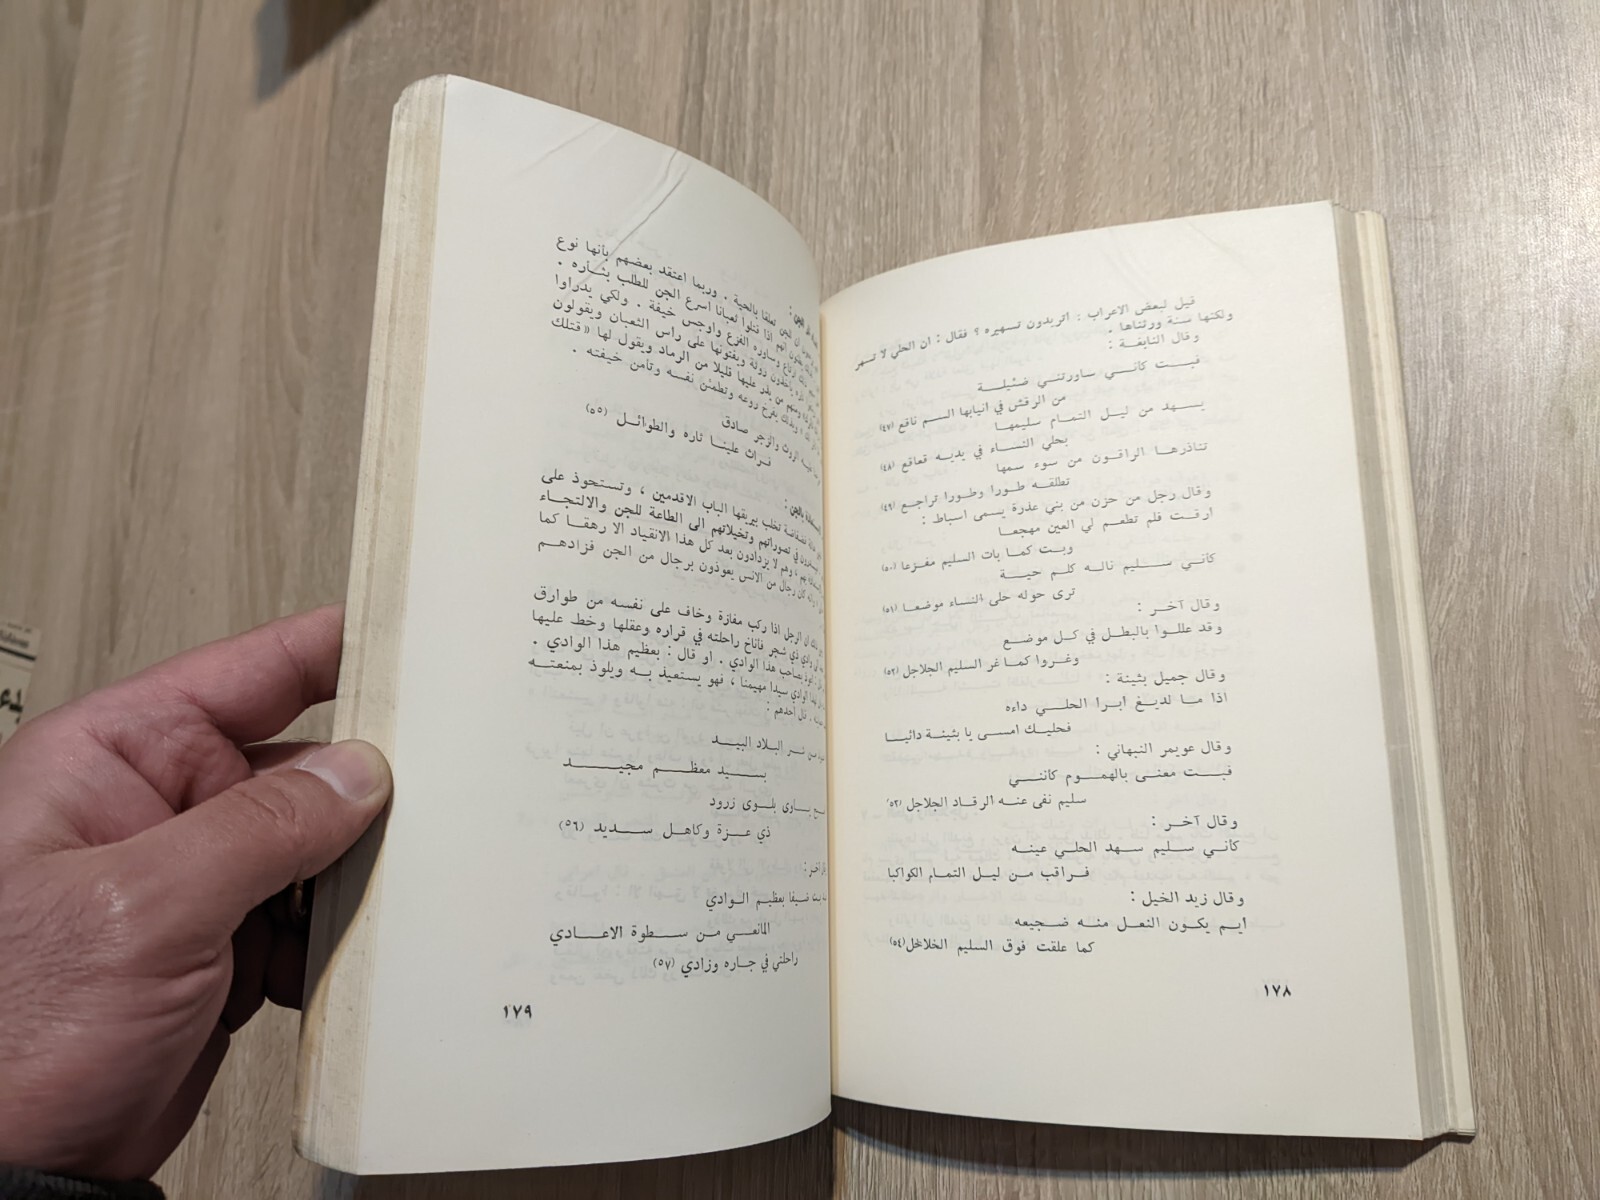 قيل لبعض الاعراب : اتريدون تسهيره ؟ فقال : ان الحلي لا تسهر
ولكنها سنة ورثناها .
وقال النابغة :
فبت كأني ساورتني ضئيلة
من الرقش في انيابها السم ناقع (٤٧)
يسهد من ليل التمام سليمها
بحلي النساء في يديه قعاقع (٤٨)
تناذرها الراقون من سوء سمها
تطلقه طورا وطورا تراجع (٤٩)
وقال رجل من حزن من بني عذرة يسمى اسباط :
ارقت فلم تطعم لي العين مهجعا
وبت كما بات السليم مفزعا (٥٠)
كأني سليم ناله كلم حية
ترى حوله حلى النساء موضعا (٥١)
وقال آخر :
وقد عللوا بالبطل في كل موضع
وغروا كما غر السليم الجلاجل (٥٢)
وقال جميل بثينة :
اذا ما لديغ ابرا الحلي داءه
فحليك امسى يا بثينة دائيا
وقال عويمر النبهاني :
فبت معنى بالهموم كأنني
سليم نفى عنه الرقاد الجلاجل (٥٣)
وقال آخر :
كأني سليم سهد الحلي عينه
فراقب من ليل التمام الكواكبا
وقال زيد الخيل :
ايم يكون النعل منه ضجيعه
كما علقت فوق السليم الخلاخل (٥٤)
١٧٨
الجن :
تعلقا بالحية . وربما اعتقد بعضهم بأنها نوع
انهم اذا قتلوا ثعبانا اسرع الجن للطلب بثأره .
وساوره الفزع واوجس خيفة . ولكي يدراوا
روثة ويفتونها على راس الثعبان ويقولون
من يذر عليها قليلا من الرماد ويقول لها « قتلك
وبذلك يفرخ روعه وتطمئن نفسه وتأمن خيفته .
الروث والزجر صادق
فراث علينا ثاره والطوائل (٥٥)
بالجن :
تخلب ببريقها الباب الاقدمين ، وتستحوذ على
في تصوراتهم وتخيلاتهم الى الطاعة للجن والالتجاء
بهم ، وهم لا يزدادون بعد كل هذا الانقياد الا رهقا كما
كان رجال من الانس يعوذون برجال من الجن فزادهم
ان الرجل اذا ركب مفازة وخاف على نفسه من طوارق
وادي ذي شجر فأناخ راحلته في قراره وعقلها وخط عليها
بصاحب هذا الوادي . او قال : بعظيم هذا الوادي .
الوادي سيدا مهيمنا ، فهو يستعيذ به ويلوذ بمنعته
قال احدهم :
من شر البلاد البيد
بسيد معظم مجيد
بأوى بلوى زرود
ذي عزة وكاهل سديد (٥٦)
آخر :
ضيفا بعظيم الوادي
المانعي من سطوة الاعادي
راحلتي في جاره وزادي (٥٧)
١٧٩